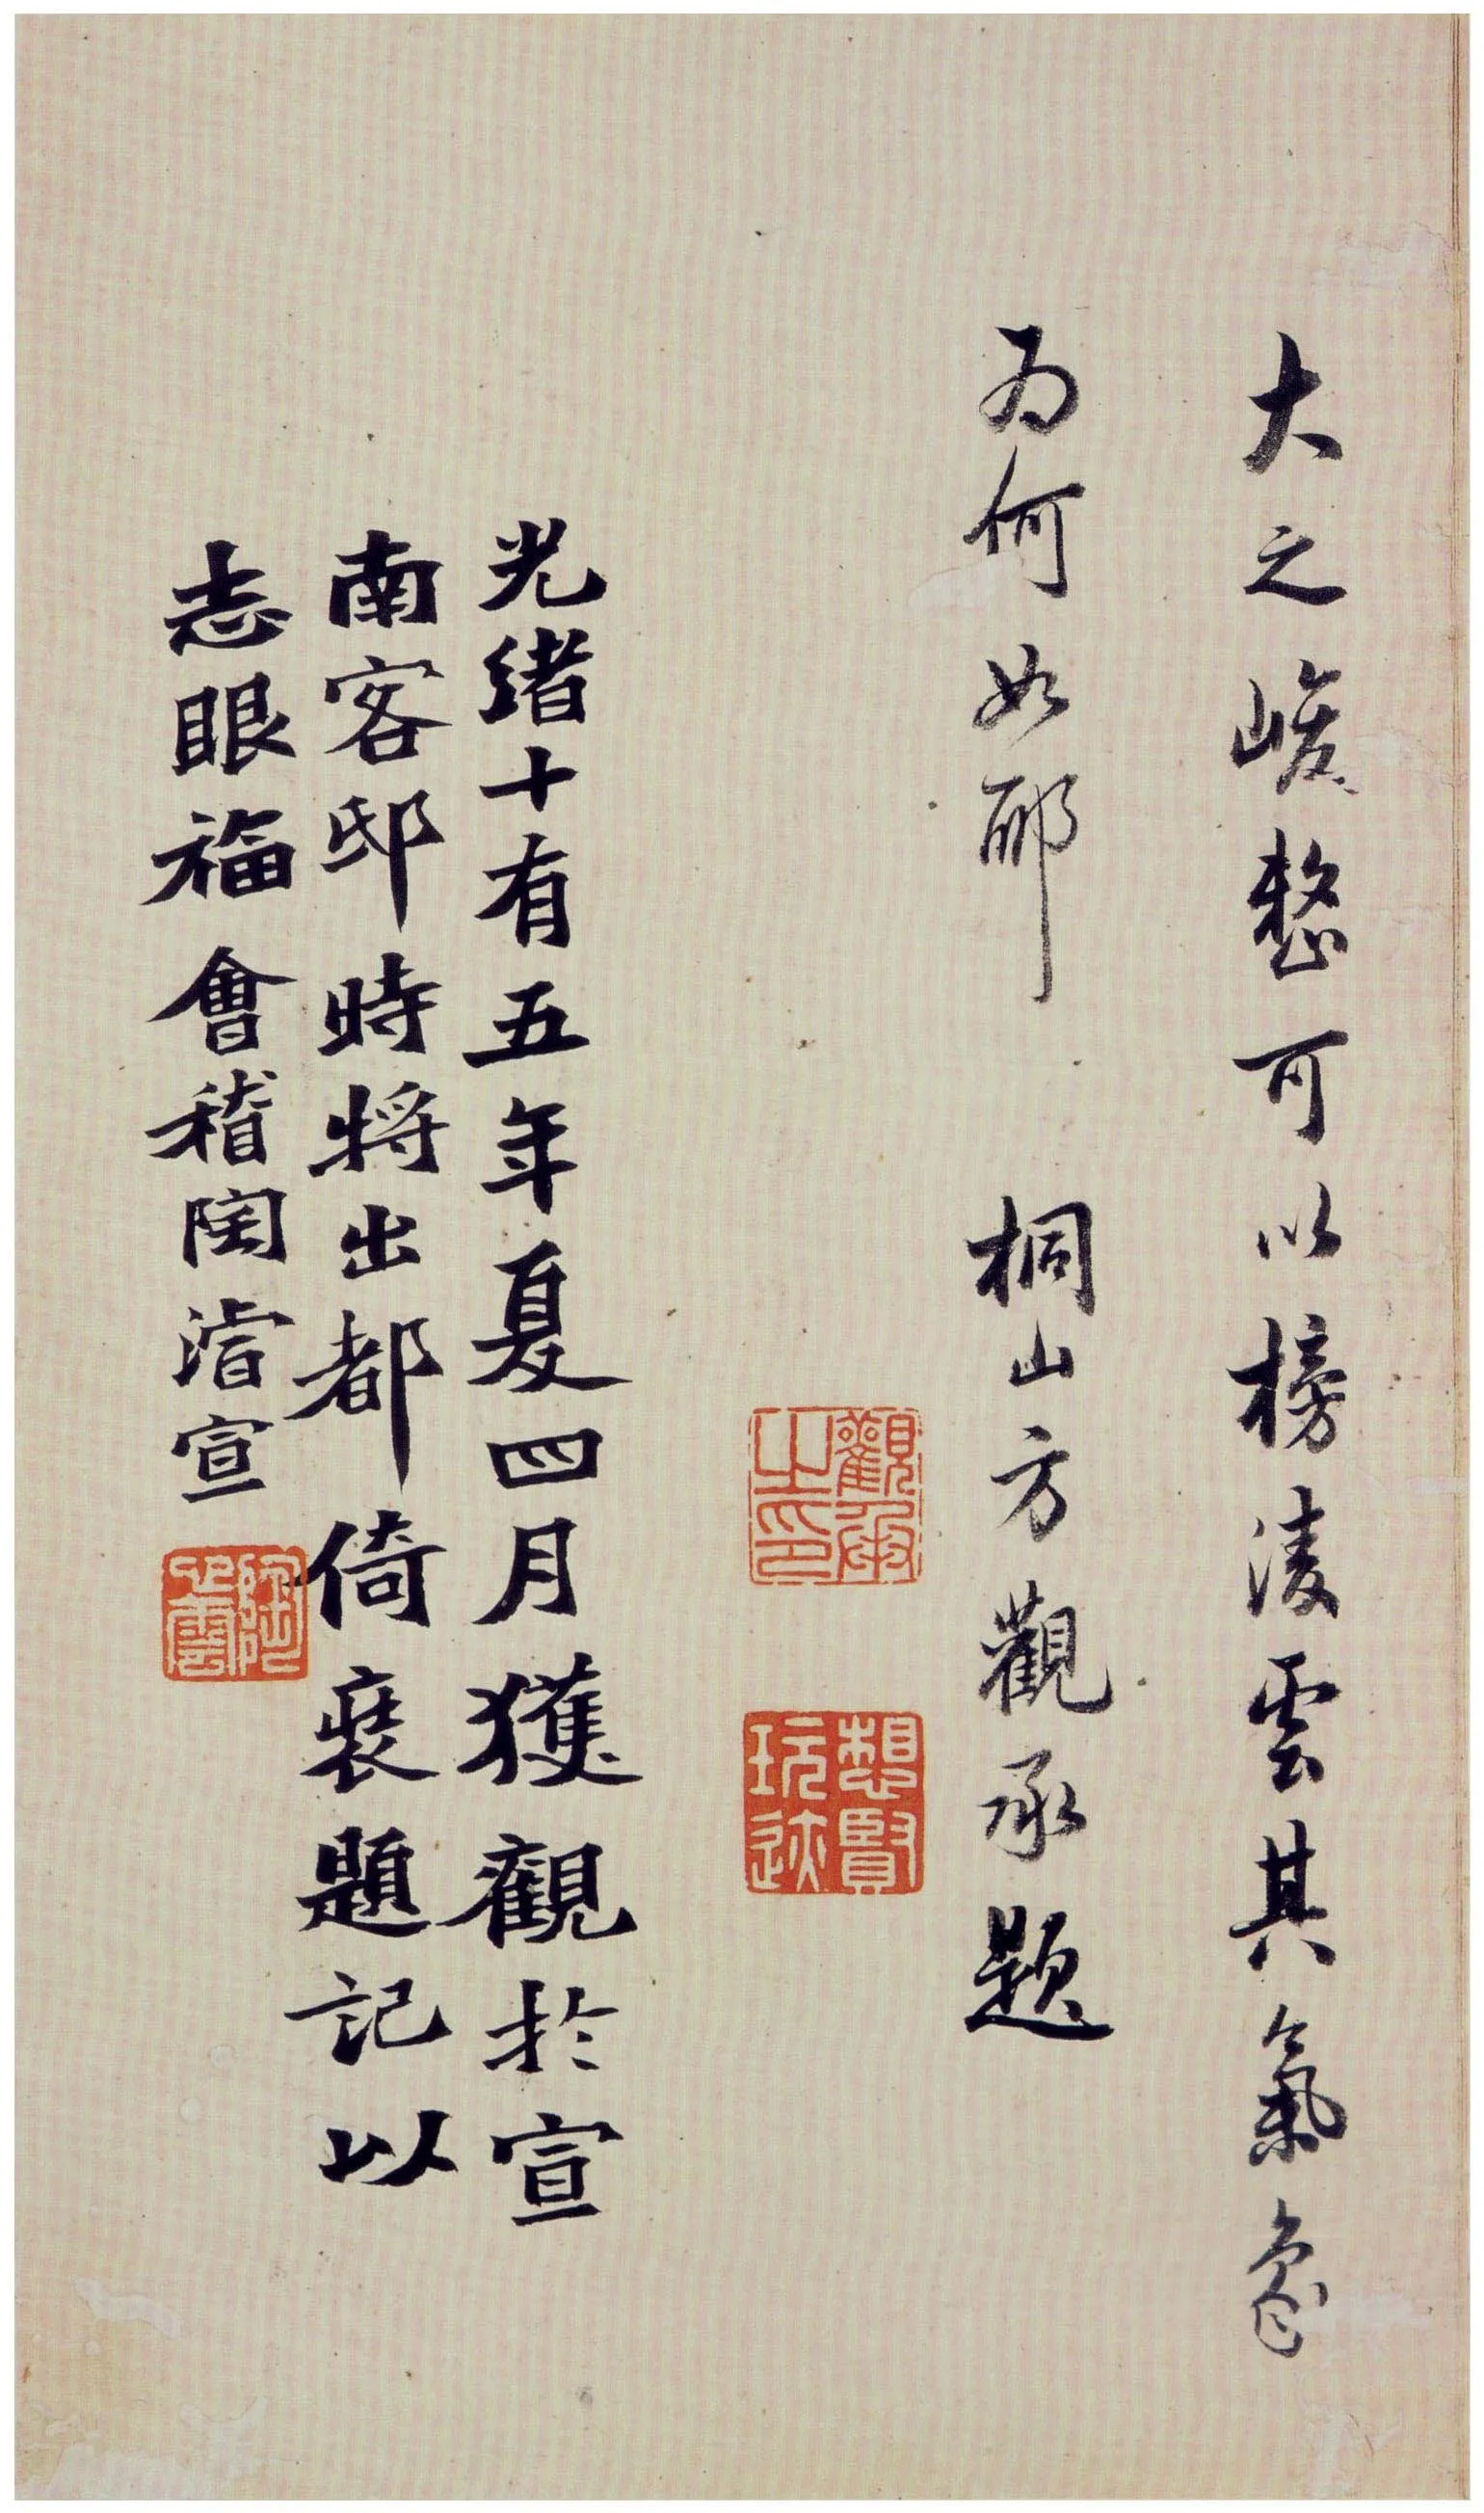 大之峻整可以榜凌雲其氣象
为何如耶 桐山方觀承題
觀承之印
想賢玩迹
光绪十有五年夏四月獲觀於宣
南客邸時将出都倚裝題記以
志眼福會稽陶濬宣